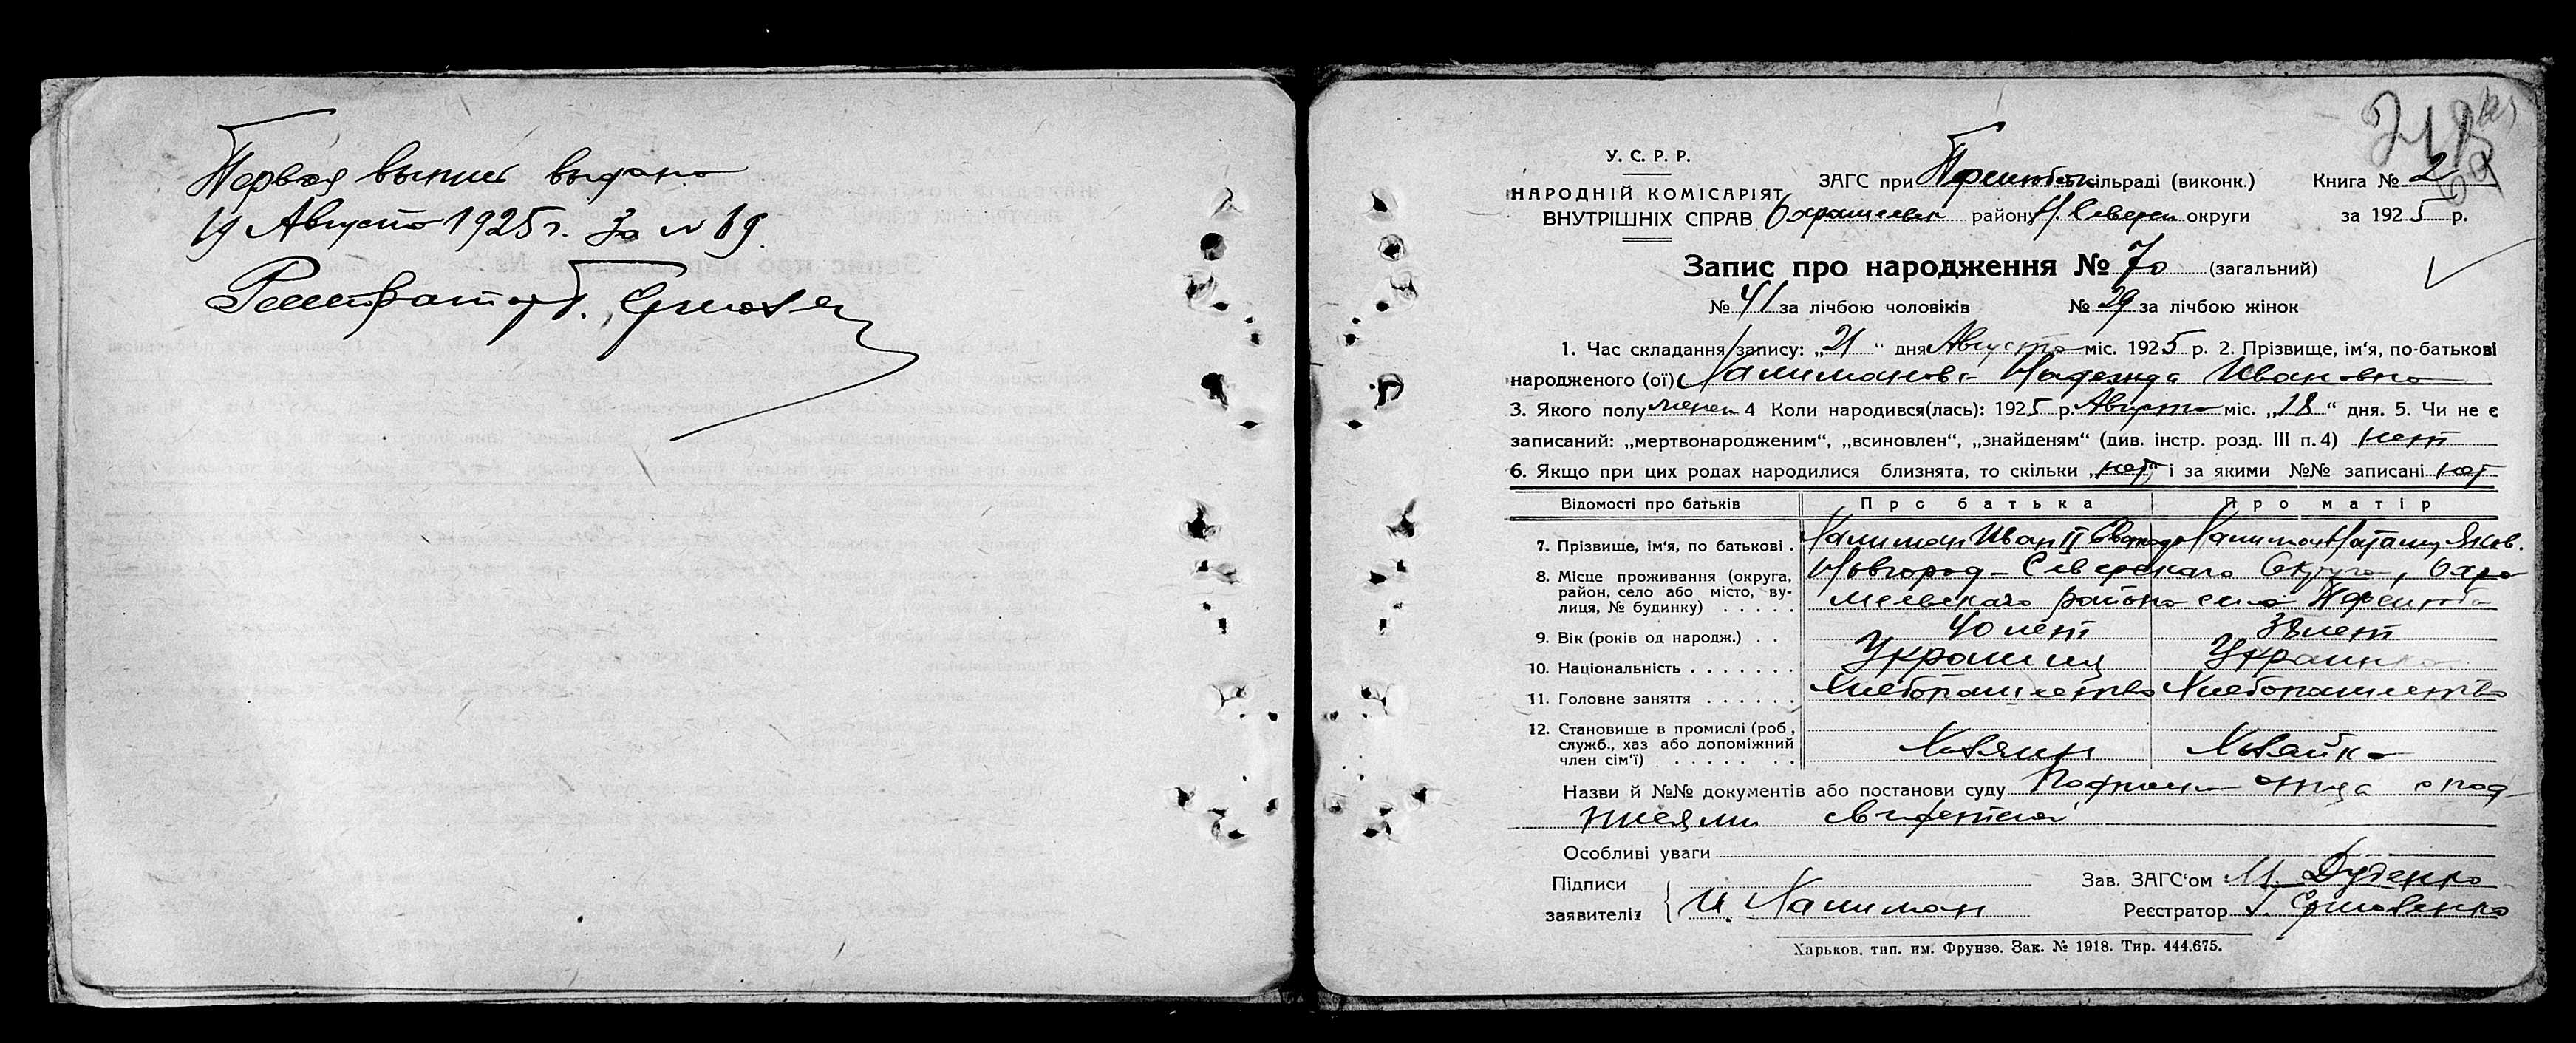 Первая выпись выдана
19 Августа 1925 г. За № 19.
Регистратор
218
У. С. Р. Р.
НАРОДНІЙ КОМІСАРІЯТ
ВНУТРІШНІХ СПРАВ
ЗАГС при сільраді (виконк.) Книга № 2
району Н. Северск округи за 1925 р.
Запис про народження № 70 (загальний)
№ 41 за лічбою чоловіків № 29 за лічбою жінок
1. Час складання запису: „21“ дня Августа міс. 1925 р. 2. Прізвище, ім‘я, по-батькові
народженого (ої) Халиманова Надежда Ивановна
3. Якого полу женск 4 Коли народився(лась): 1925 р. Августа міс. „18“ дня. 5. Чи не є
записаний: „мертвонародженим“, „всиновлен“, „знайденям“ (див. інстр. розд. III п. 4) нет
6. Якщо при цих родах народилися близнята, то скільки „нет“ і за якими №№ записані нет
Відомості про батьків Про батька Про матір
7. Прізвище, ім‘я, по батькові . Халиман Иван II Халиман Наталия Яков.
8. Місце проживання (округа, район, село або місто, вулиця, № будинку) . . . . . Новгород-Северскаго Округа, Охра
меевскаго района село
9. Вік (років од народж.) . . 40 лет 38 лет
10. Національність . . . . . . . Украинец Украинка
11. Головне заняття . . . . . . Хлебопашество Хлебопашество
12. Становище в промислі (роб, служб., хаз або допоміжний член сім‘ї) . . . . . . . Хозяин Хозяйка
Назви й №№ документів або постанови суду отца с под-
писями
Особливі уваги
Підписи
заявителів И. Халиман
Зав. ЗАГС‘ом М. Дуденко
Реєстратор
Харьков, тип. им. Фрунзе. Зак. № 1918. Тир. 444.675.